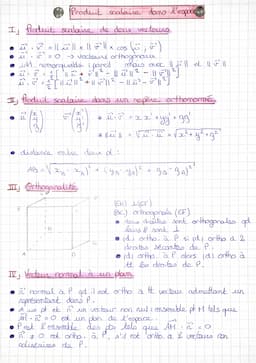 Produit scalaire dans l'espace
I, Produit scalaire de deux vecteurs
• u⃗ . v⃗ = ||u⃗|| × ||v⃗|| × cos (u⃗ , v⃗)
• u⃗ . v⃗ = 0 → vecteurs orthogonaux
• id. remarquable (pareil mais avec ||u⃗|| et ||v⃗||
• u⃗ . v⃗ = ½ [||u⃗ + v⃗||² - ||u⃗||² - ||v⃗||²]
II, Produit scalaire dans un repère orthonormé
• u⃗ (x y z) v⃗ (x' y' z') • u⃗ . v⃗ = xx' + yy' + zz'
• ||u⃗|| = √u⃗ . u⃗ = √x² + y² + z²
• distance entre deux pt :
AB = √(x_B - x_A)² + (y_B - y_A)² + (z_B - z_A)²
III, Orthogonalité
(EH) ⊥ (GF)
(BC) orthogonale (EF)
• deux droites sont orthogonales qd
leurs // sont ⊥
• (d) ortho. à P si (d) ortho à 2
droites sécantes de P.
• (d) ortho. à P alors (d) ortho à
tt les droites de P.
IV, Vecteur normal à un plan
• n⃗ normal à P qd il est ortho à tt vecteur admettant un
représentant dans P.
• A un pt et n⃗ un vecteur non nul : ensemble pt M tels que
AM⃗ . n⃗ = 0 est un plan de l'espace
• P est l'ensemble des pts tels que AM⃗ . n⃗ = 0
• n⃗ ≠ 0 est ortho. à P, s'il est ortho. à 2 vecteurs non
colinéaires de P.